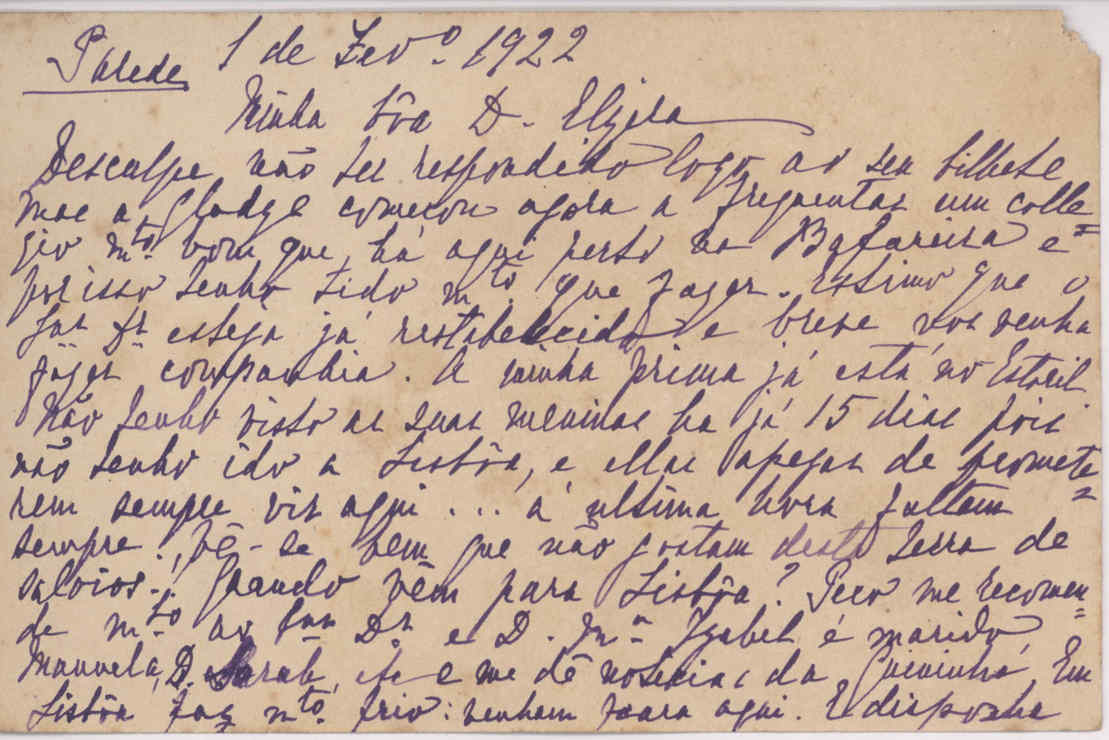 Parede 1 de Fev.º 1922
Minha bôa D. Elzira
Desculpe não ter respondido logo ao seu bilhete
mas a Gladys começou agora a frequentar um colle=
gio m.to bom que há aqui perto na Bafureira e
por isso tenho tido m.to que fazer. Estimo que o
Snr Dr esteja já restabelecido e breve nos venha
fazer companhia. A minha prima já está no Estoril.
Não tenho visto as suas meninas ha já 15 dias pois
não tenho ido a Lisbôa, e ellas apezar de promete=
rem sempre vir aqui ... á ultima hora faltem
sempre. Vê-se bem que não gostam desta terra de
saloios..! Quando vêm para Lisbôa? Peço me recomen=
de m.to ao Snr Dr e D. M.ª Izabel é marido,
Manuela, D. Sarah, etc e me dê noticias da. Em
Lisbôa faz m.to frio: venham para aqui. E disponha